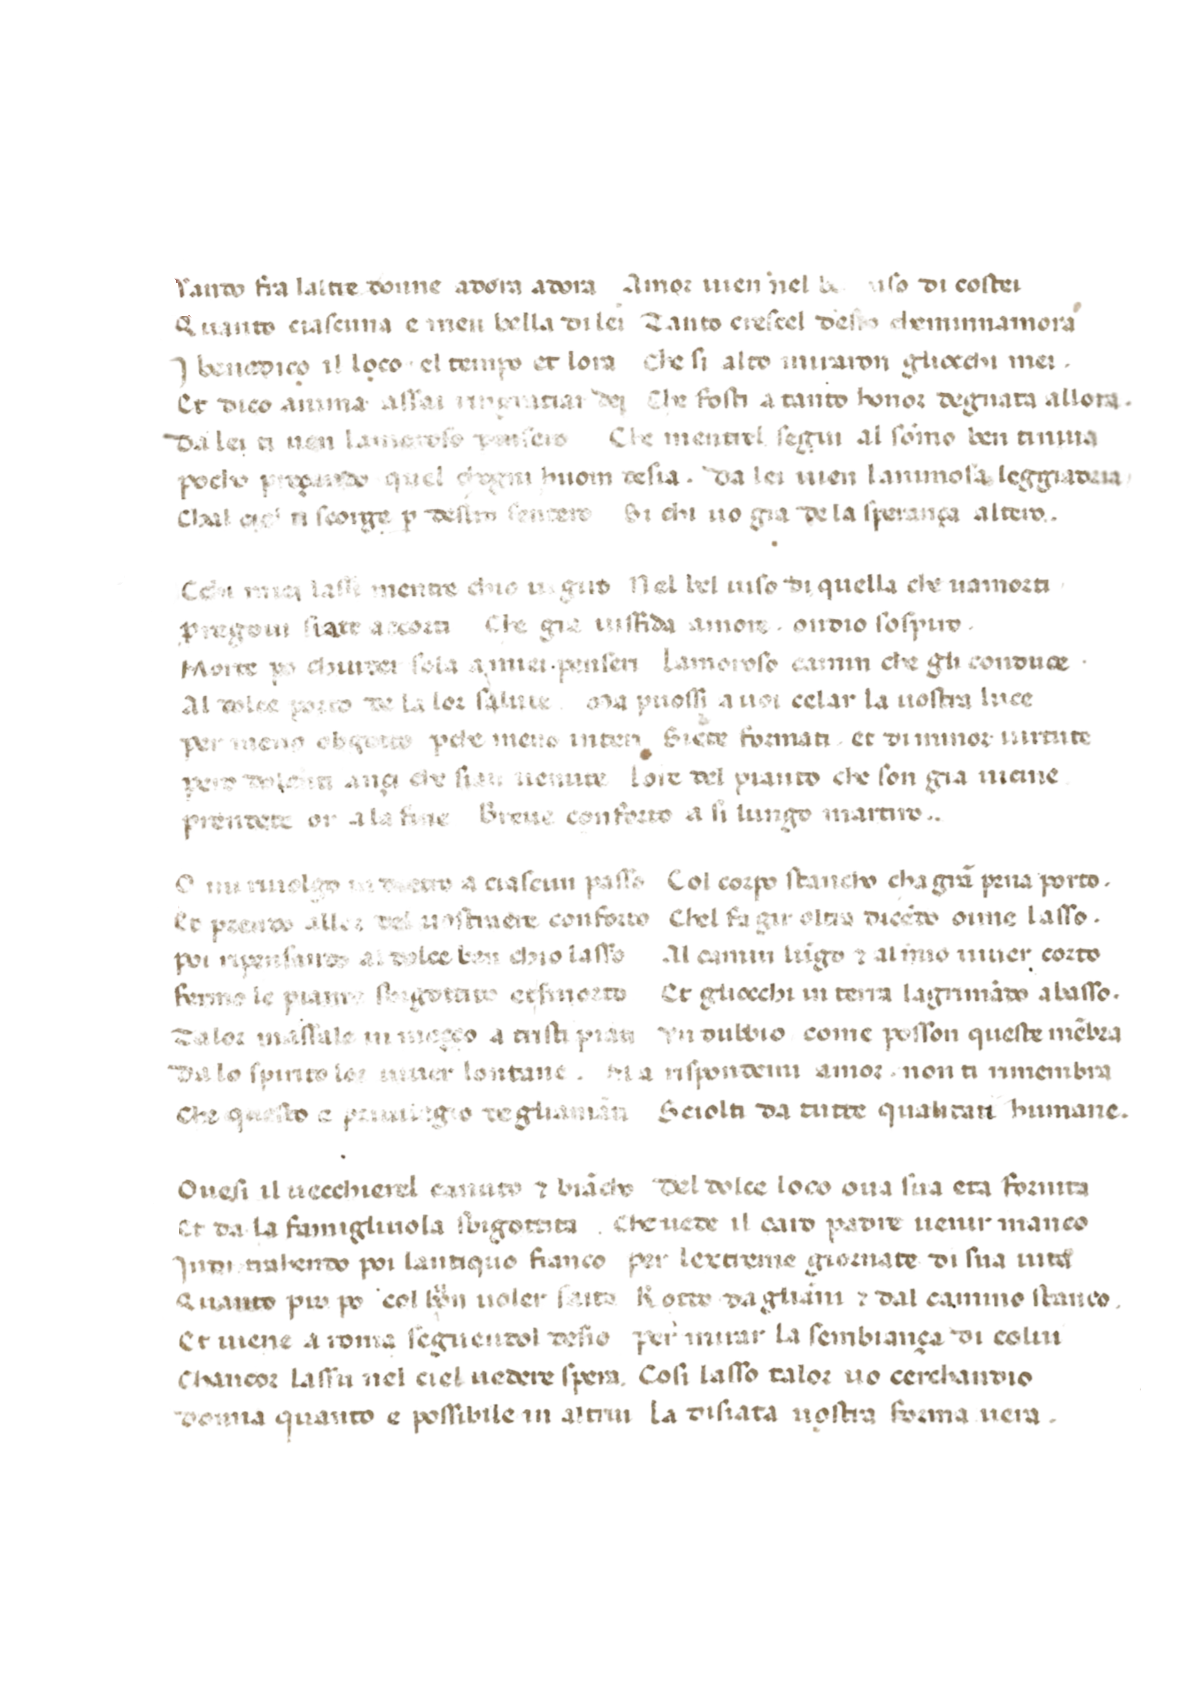 Vanto fra laltre donne adora adora Amor uien nel be uiso di costei
Quanto ciascuna e men bella di lei Tanto crescel desio cheminnamora
I benedico il loco el tempo et lora che si alto miraron gliocchi mei .
Et dico anima assai ringratiar dei Che fosti a tanto honor degnata allora .
Da lei ti uen lamoroso pensero Che mentrel segui al sōmo ben tinuia
pocho prezando quel chogni huom desia . Da lei uien lanimosa leggiadria
Chal ciel ti scorge p destro sentero Si chi uo gia de la sperança altero ..
Cchi miei lassi mentre chio ui giro Nel bel uiso di quella che uamorti
pregoui siate accorti Che gia uisfida amore . ondio sospiro .
Morte po chiuder sola a miei penseri Lamoroso camin che gli conduce .
Al dolce porto de la lor salute . Ma puossi a uoi celar la uostra luce
per meno obgetto pche meno interi Siete formati . et di minor uirtute
pero dolenti anzi che sian uenute Lore del pianto che son gia uicine
prendete or a la fine Breue conforto a si lungo martiro ..
O mi riuolgo in dietro a ciascun passo Col corpo stancho cha grā pena porto .
Et prendo allor del uostraere conforto Chel fa gir oltra dicēdo oime lasso .
poi ripensando al dolce ben chio lasso Al camin lūgo ⁊ al mio uiuer corto
fermo le piante sbigottito et smorto Et gliocchi in terra lagrimādo abasso .
Talor massale in mezzo a tristi piāti Vn dubbio come posson queste mēbra
Da lo spirito lor uiuer lontane . Ma rispondemi amor . non ti rimembra
Che questo e priuilegio degliamāti Sciolti da tutte qualitati humane .
Ouesi il uecchierel canuto ⁊ biācho Del dolce loco oua sua eta fornita
Et da la famigliuola sbigottita . Che uede il caro padre uenir manco
Indi trahendo poi lantiquo fianco per lextreme giornate di sua uita
Quanto piu po col bon uoler saita Rotto dagliāni ⁊ dal camino stanco .
Et uiene a roma seguendol desio per mirar la sembiança di colui
Chancor lassu nel ciel uedere spera . Cosi lasso talor uo cerchandio
Donna quanto e possibile in altrui La disiata uostra forma uera .